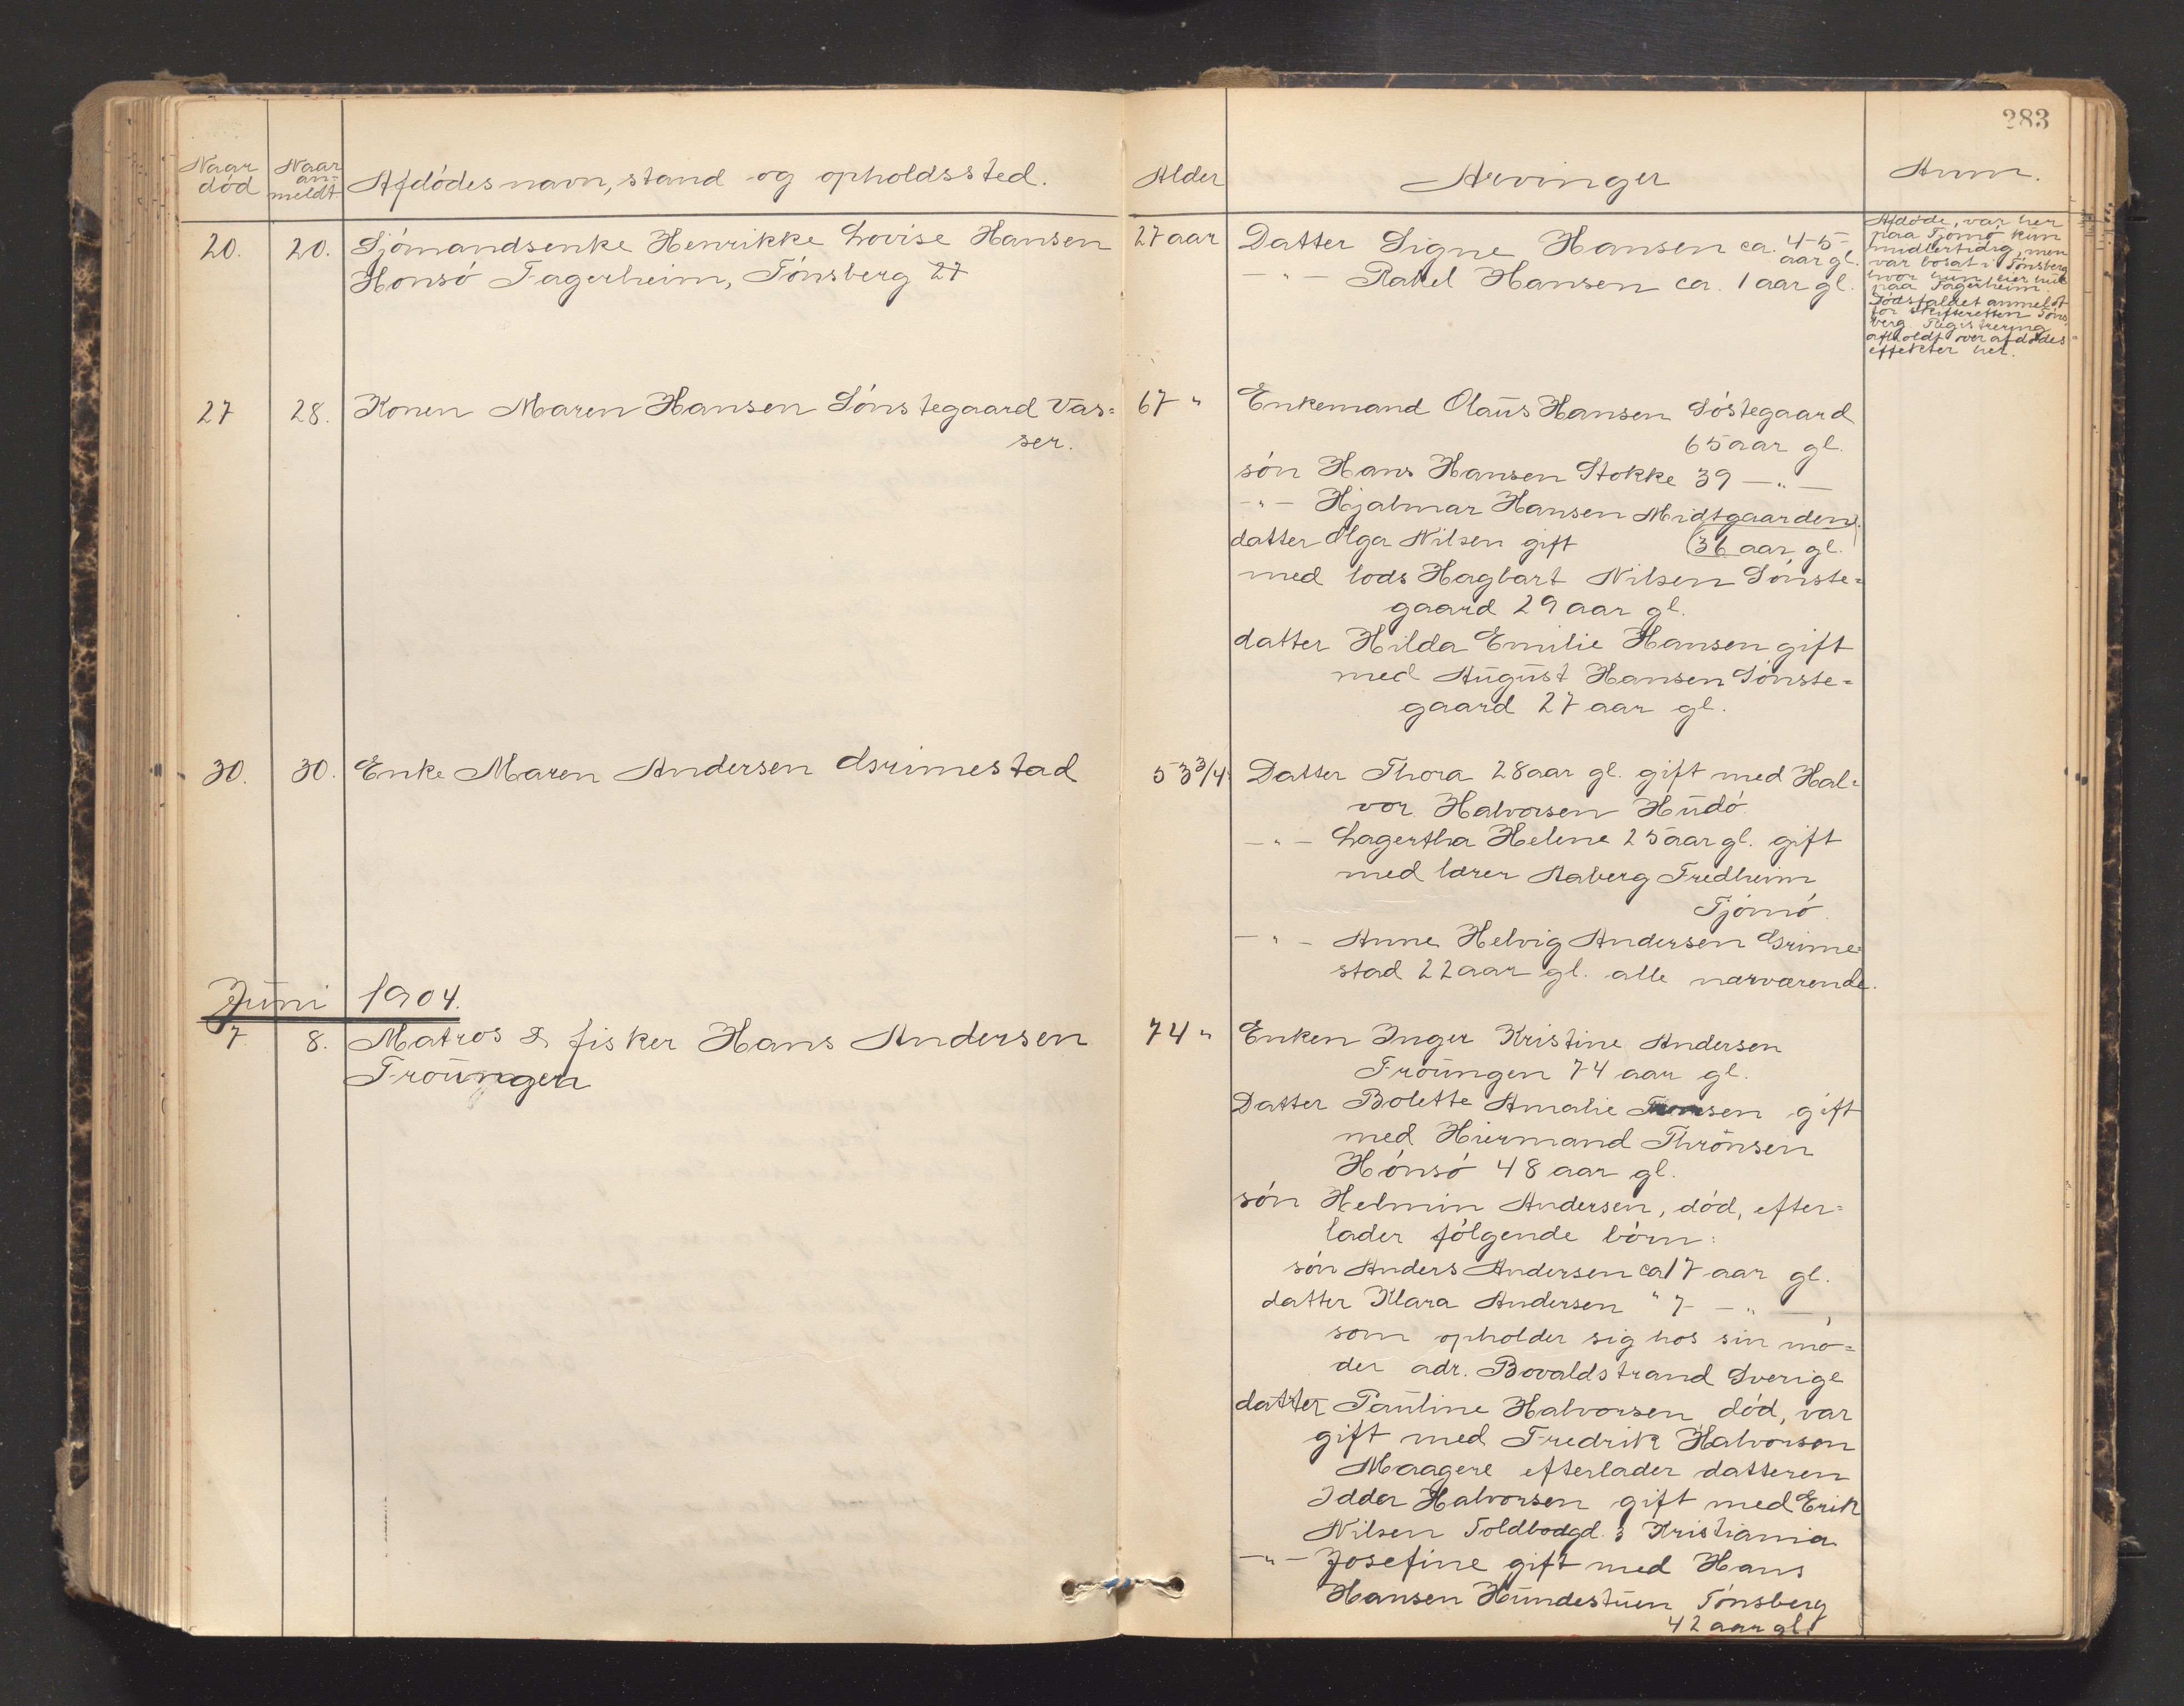 283
Naar død
Naar an-meldt
Afdødes navn, stand og opholdssted.
Alder
Arvinger
Anm.
20. 20. Sjömandsenke Henrikke Lovise Hansen
Honsö Fagerheim, Tönsberg 27
27 aar
Datter Signe Hansen ca. 4-5 aar gl.
-"- Rakel Hansen ca. 1 aar gl.
Afdøde, var her
paa Tjømø kun
midlertidig, men
var bosat i Tönsberg
hvor hun eier hus
paa Fagerheim.
Dödsfaldet anmeldt
for skifteretten Töns
berg. Registrering
afholdt over afdødes
effekter her.
27 28. Konen Maren Hansen Sönstegaard Vas=
ser.
67 "
Enkemand Olaus Hansen Söstegaard
65 aar gl.
sön Hans Hansen Stokke 39 -"-
-"- Hjalmar Hansen Midtgaarden
(36 aar gl.
datter Olga Nilsen gift
med lods Hagbart Nilsen Sönste=
gaard 29 aar gl.
datter Hilda Emilie Hansen gift
med August Hansen Sönste=
gaard 27 aar gl.
30. 30. Enke Maren Andersen Grimestad
53 3/4
Datter Thora 28 aar gl. gift med Hal=
vor Halvorsen Hudö.
-"- Lagertha Helene 25 aar gl. gift
med lærer Aaberg Fredheim
Tjömö.
-"- Anne Helvig Andersen Grime=
stad 22 aar gl. alle nærværende.
Juni 1904.
7. 8. Matros & fisker Hans Andersen
Tröungen
74 "
Enken Inger Kristine Andersen
Tröungen 74 aar gl.
Datter Bolette Amalie gift
med Hiermand Thrönsen
Hönsö 48 aar gl.
sön Helmin Andersen, död, efter=
lader fölgende börn:
sön Anders Andersen ca 17 aar gl.
datter Klara Andersen " 7 -"-,
som opholder sig hos sin mo=
der adr. Bovaldstrand Sverige
datter Pauline Halvorsen död, var
gift med Fredrik Halvorsen
Maagerö efterlader datteren
Idda Halvorsen gift med Erik
Nilsen Toldbodgd. 3 Kristiania
-"- Josefine gift med Hans
Hansen Hundestuen Tönsberg
42 aar gl.